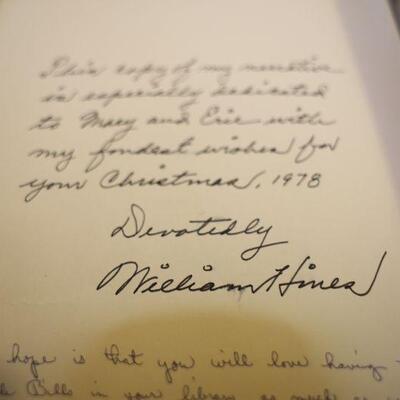 This copy of my narrative
is especially dedicated
to Mary and Eric with
my fondest wishes for
your Christmas, 1978
Devotedly
William Hines
hope is that you will love having
Bills in your library as much as